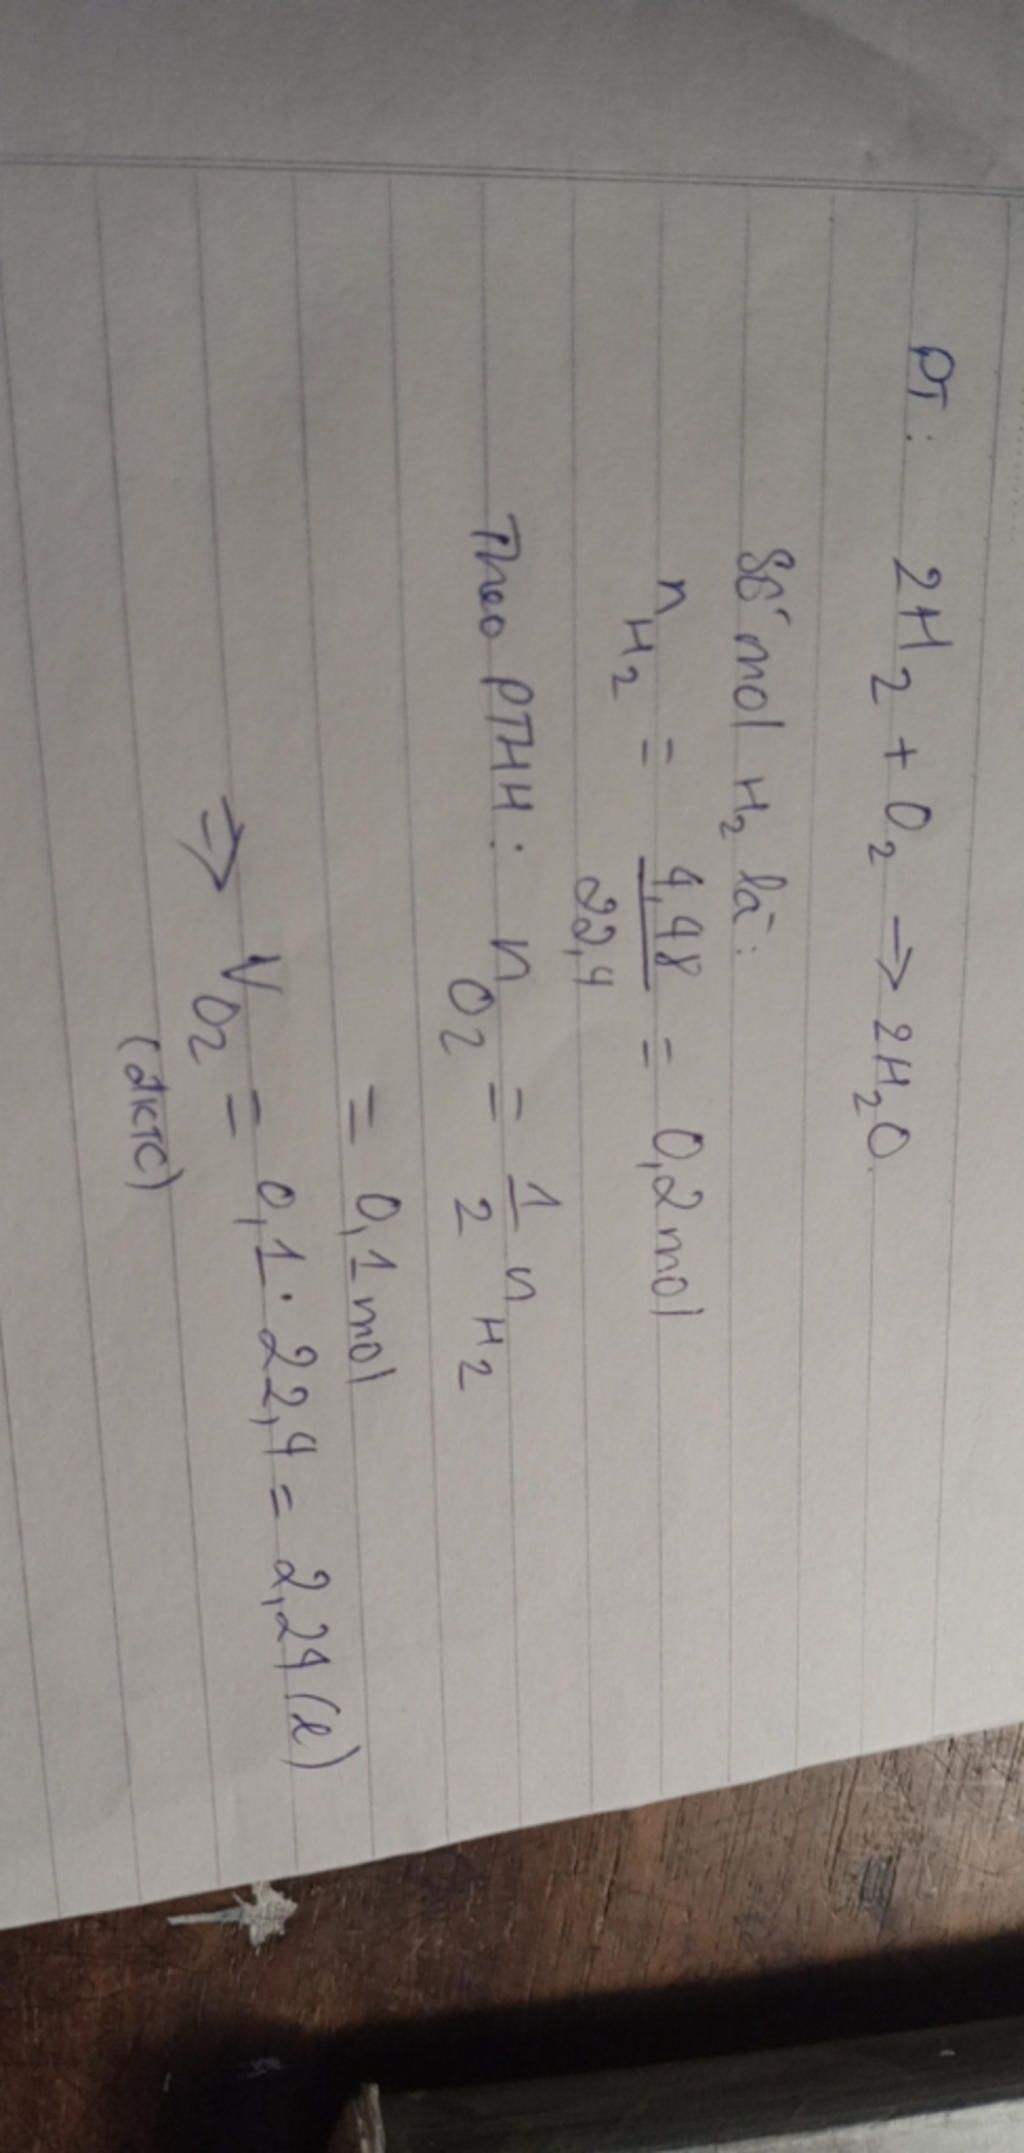 PT: 2H₂ + O₂ → 2H₂O.
Số mol H₂ là:
n H₂ = 4,48 / 22,4 = 0,2 mol
Theo PTHH: n O₂ = 1/2 n H₂
= 0,1 mol
⇒ V O₂ = 0,1 . 22,4 = 2,24 (l)
(đktc)